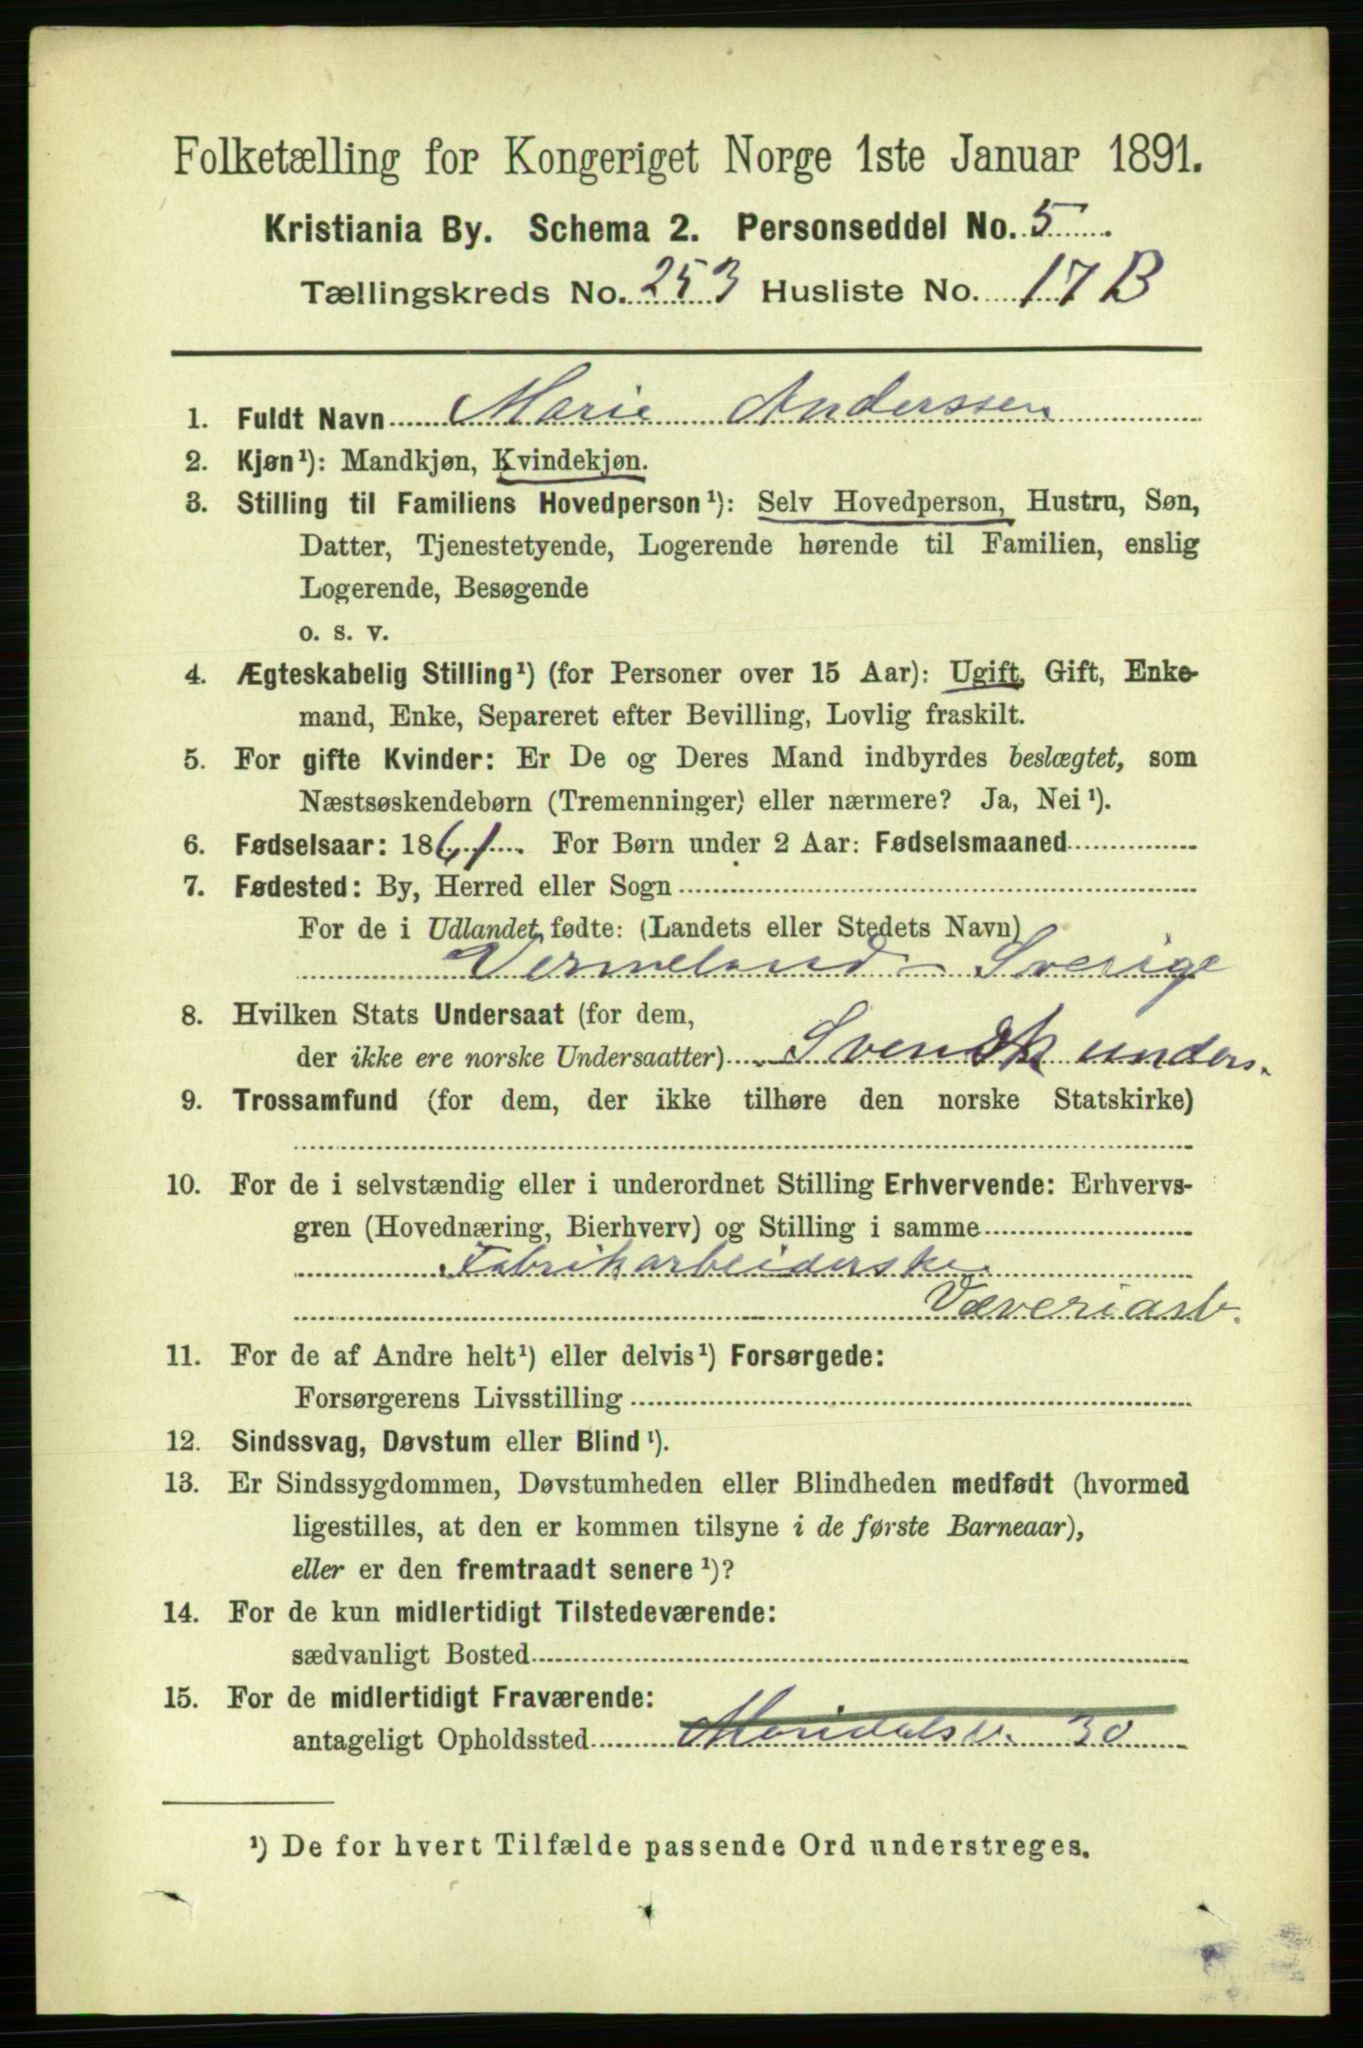 Folketælling for Kongeriget Norge 1ste Januar 1891.
Kristiania By. Schema 2. Personseddel No. 5
Tællingskreds No. 253 Husliste No. 17 B
1. Fuldt Navn Marie Anderssen
2. Kjøn¹): Mandkjøn, Kvindekjøn.
3. Stilling til Familiens Hovedperson¹): Selv Hovedperson, Hustru, Søn,
Datter, Tjenestetyende, Logerende hørende til Familien, enslig
Logerende, Besøgende
o. s. v.
4. Ægteskabelig Stilling¹) (for Personer over 15 Aar): Ugift, Gift, Enke-
mand, Enke, Separeret efter Bevilling, Lovlig fraskilt.
5. For gifte Kvinder: Er De og Deres Mand indbyrdes beslægtet, som
Næstsøskendebørn (Tremenninger) eller nærmere? Ja, Nei¹).
6. Fødselsaar: 1861. For Børn under 2 Aar: Fødselsmaaned
7. Fødested: By, Herred eller Sogn
For de i Udlandet fødte: (Landets eller Stedets Navn)
Vermeland - Sverige
8. Hvilken Stats Undersaat (for dem,
der ikke ere norske Undersaatter) Svensk unders.
9. Trossamfund (for dem, der ikke tilhøre den norske Statskirke)
10. For de i selvstændig eller i underordnet Stilling Erhvervende: Erhvervs-
gren (Hovednæring, Bierhverv) og Stilling i samme
Fabrikarbeiderske
Væveriarb.
11. For de af Andre helt¹) eller delvis¹) Forsørgede:
Forsørgerens Livsstilling
12. Sindssvag, Døvstum eller Blind¹).
13. Er Sindssygdommen, Døvstumheden eller Blindheden medfødt (hvormed
ligestilles, at den er kommen tilsyne i de første Barneaar),
eller er den fremtraadt senere¹)?
14. For de kun midlertidigt Tilstedeværende:
sædvanligt Bosted
15. For de midlertidigt Fraværende:
antageligt Opholdssted Maridalsv. 30
¹) De for hvert Tilfælde passende Ord understreges.